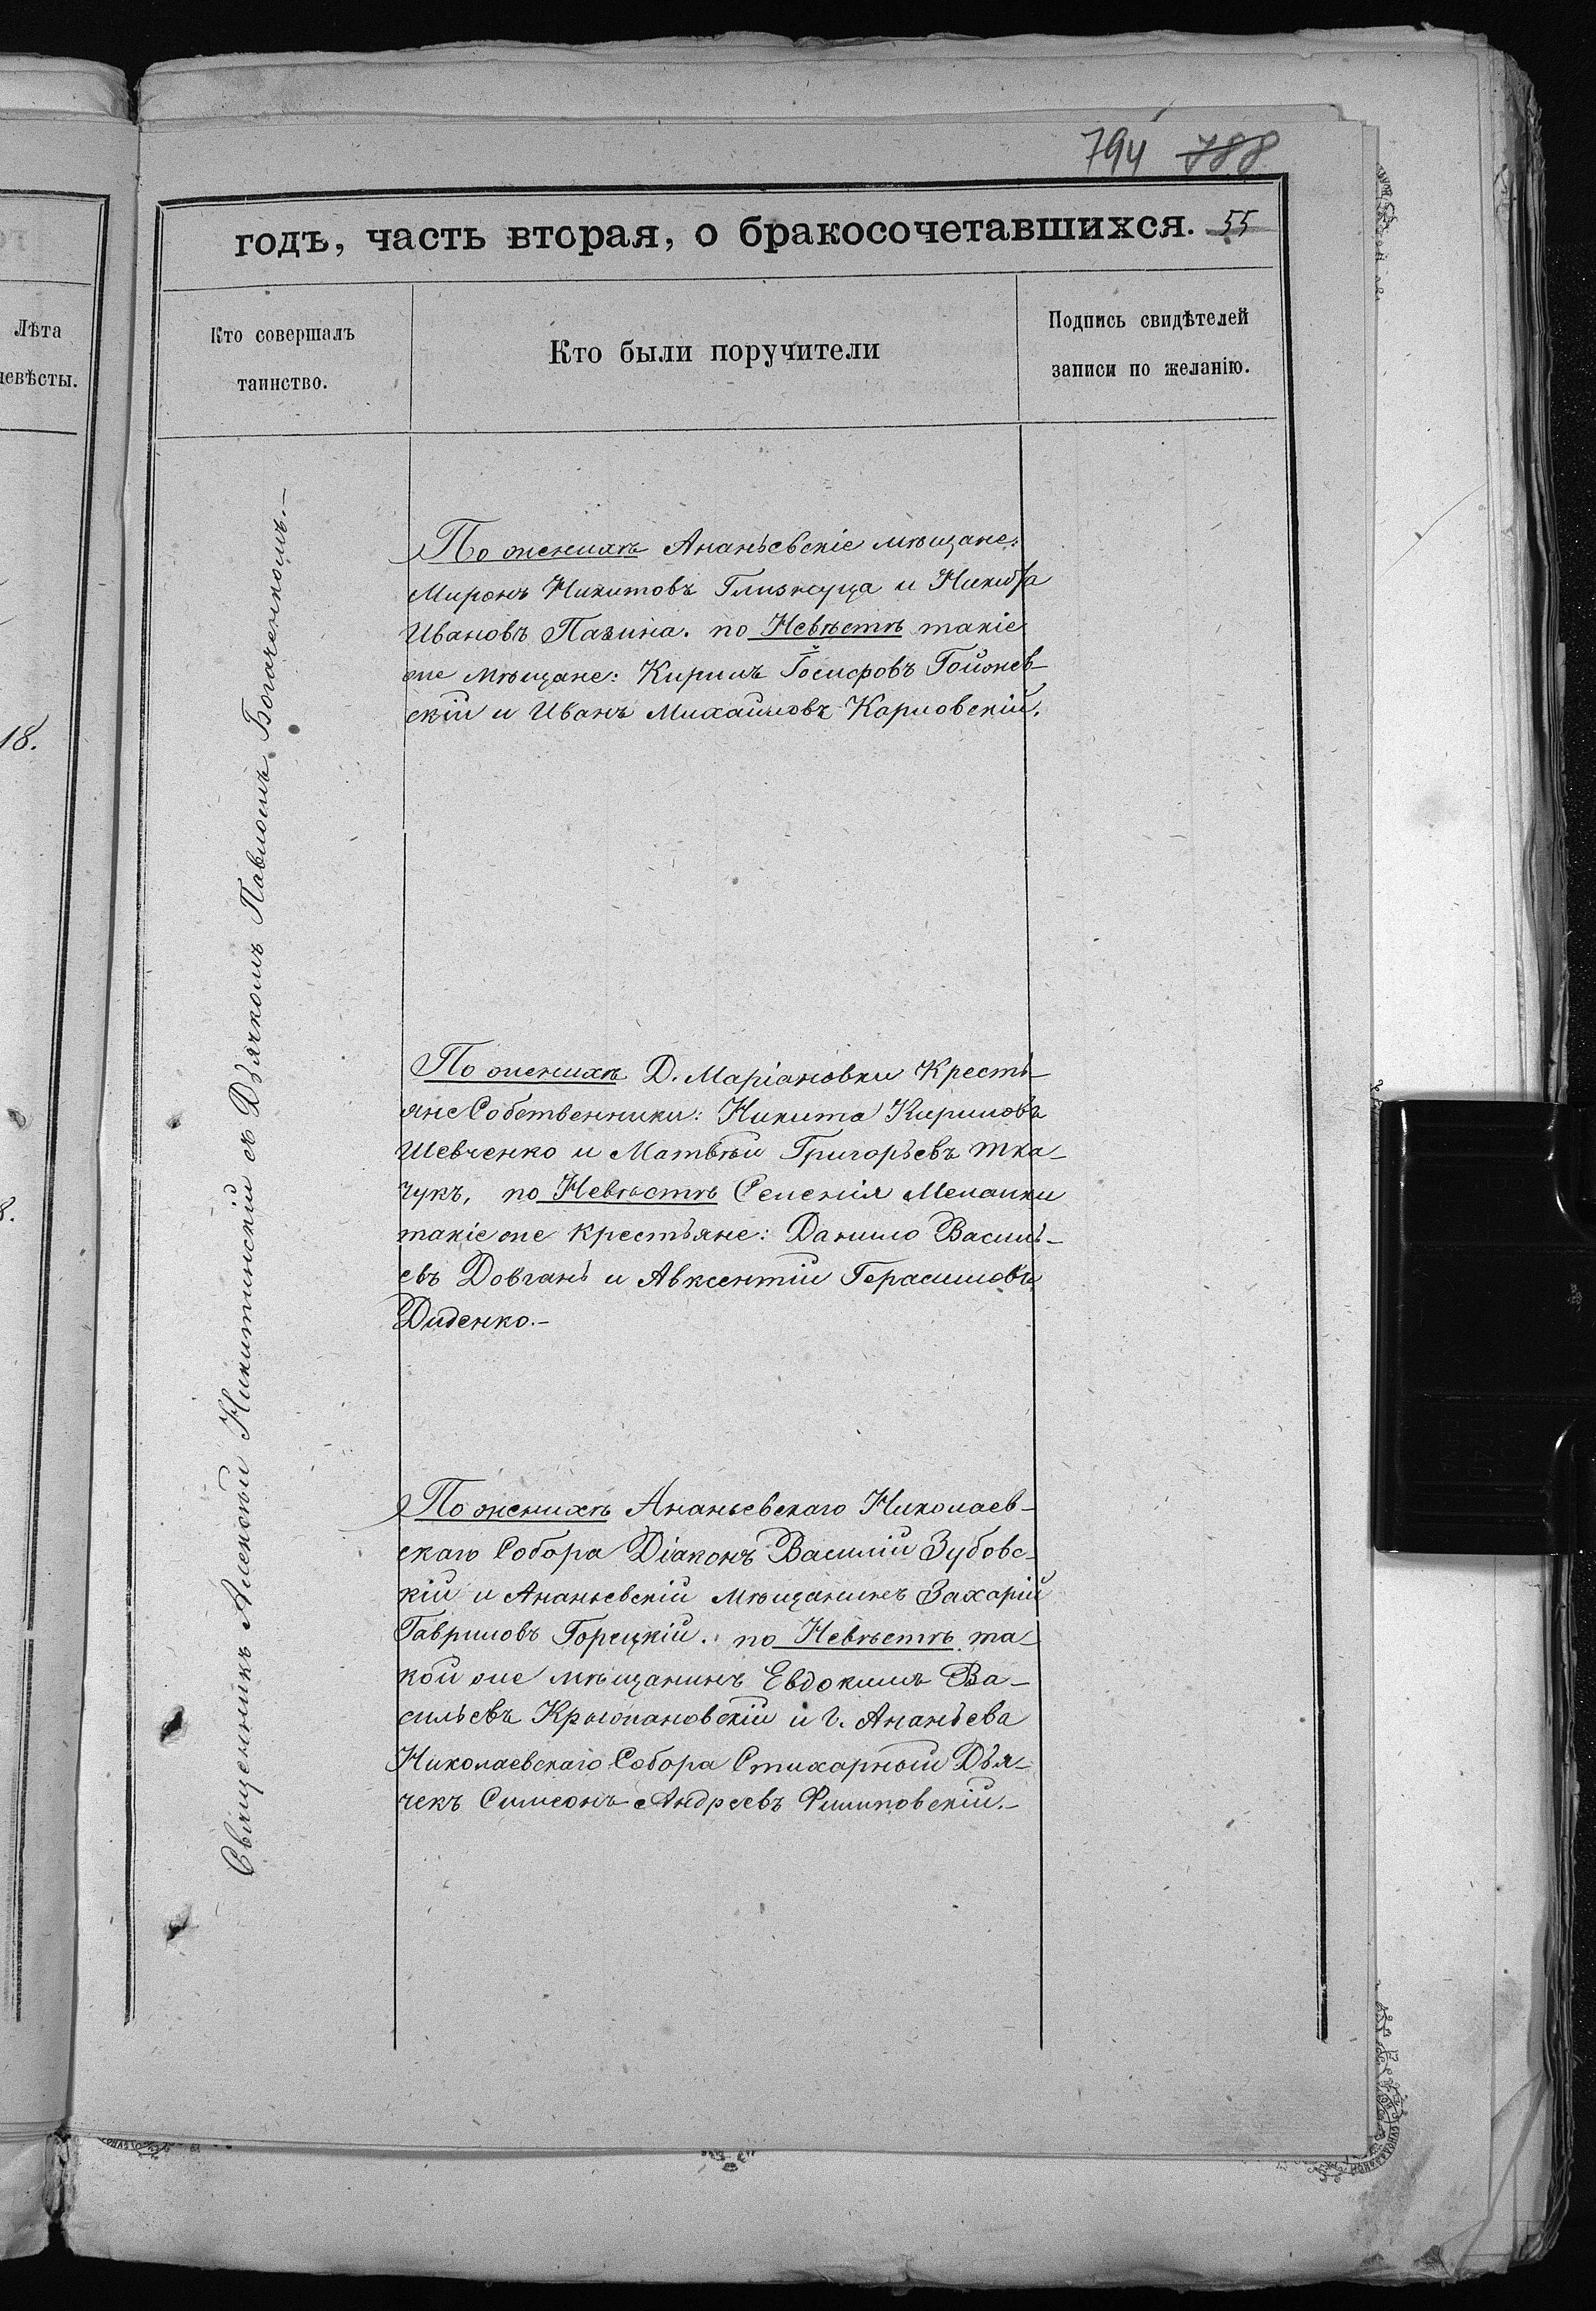 794 788
годъ, часть вторая, о бракосочетавшихся. 55
Лѣта
невѣсты.
Кто совершалъ
таинство.
Кто были поручители
Подпись свидѣтелей
записи по желанію.
18.
8.
Священникъ Алексѣй Никитинскій съ Дьячкомъ Павломъ Богаченкомъ.—
По женихѣ Ананьевскіе мѣщане:
Миронъ Никитовъ Глизнуца и Никита
Ивановъ Пазина. по Невѣстѣ такіе
же мѣщане: Кирилъ Іосифовъ Гойжев-
скій и Иванъ Михайловъ Карловскій.
По женихѣ Д. Маріановки Кресть-
яне Собственники: Никита Кириловъ
Шевченко и Матвѣй Григорьевъ Тка-
чукъ, по Невѣстѣ Селенія Меланки
такіе же крестьяне: Данило Василь-
евъ Довгань и Авксентій Герасимовъ
Диденко.—
По женихѣ Ананьевскаго Николаев-
скаго Собора Діаконъ Василій Зубовс-
кій и Ананьевскій мѣщанинъ Захарій
Гавриловъ Горецкій. по Невѣстѣ та-
кой же мѣщанинъ Евдокимъ Ва-
сильевъ Крыжановскій и г. Ананьева
Николаевскаго Собора Стихарный Дья-
чекъ Симеонъ Андреевъ Филиповскій.—